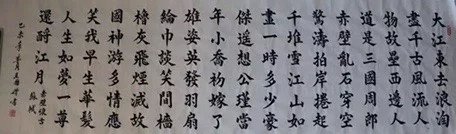 大江東去浪淘
盡千古風流人
物故壘西邊人
道是三國周郎
赤壁亂石穿空
驚濤拍岸捲起
千堆雪江山如
畫一時多少豪
傑遥想公瑾當
年小喬初嫁了
雄姿英發羽扇
綸巾談笑間檣
櫓灰飛煙滅故
國神游多情應
笑我早生華髮
人生如夢一尊
還酹江月
赤壁懷古
蘇軾
乙未年